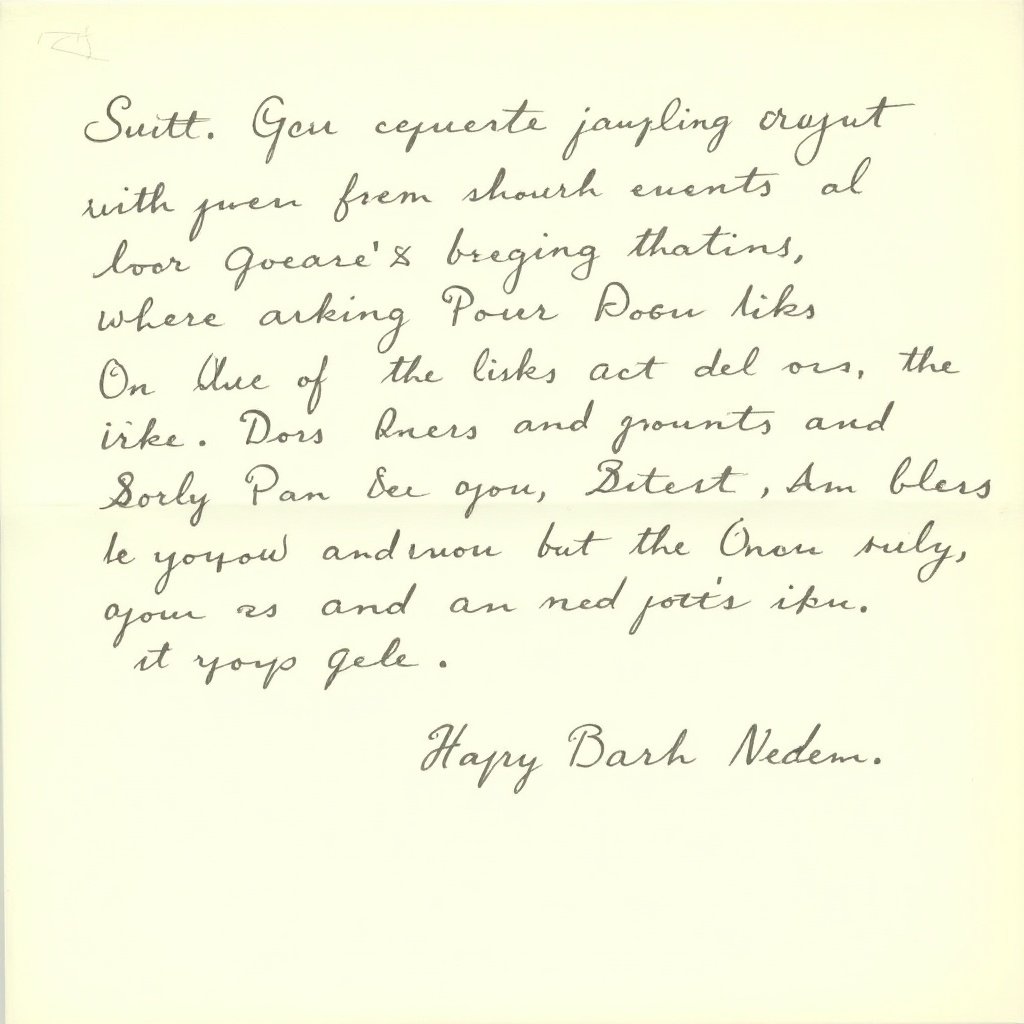 Suitt. Gou cequerte jaupling crajut
with juen frem shourh euents al
loor Goeare's breging thatins,
where arking Pour Dogu liks
On Que of the lisks act del ors, the
irke. Dors Rners and grounts and
Sorly Pan See you, Bitest, Am blers
le yoyou andruou but the Onou ruly,
your as and an ned jott's iku.
it yoys gele.
Hapry Barh Nedem.